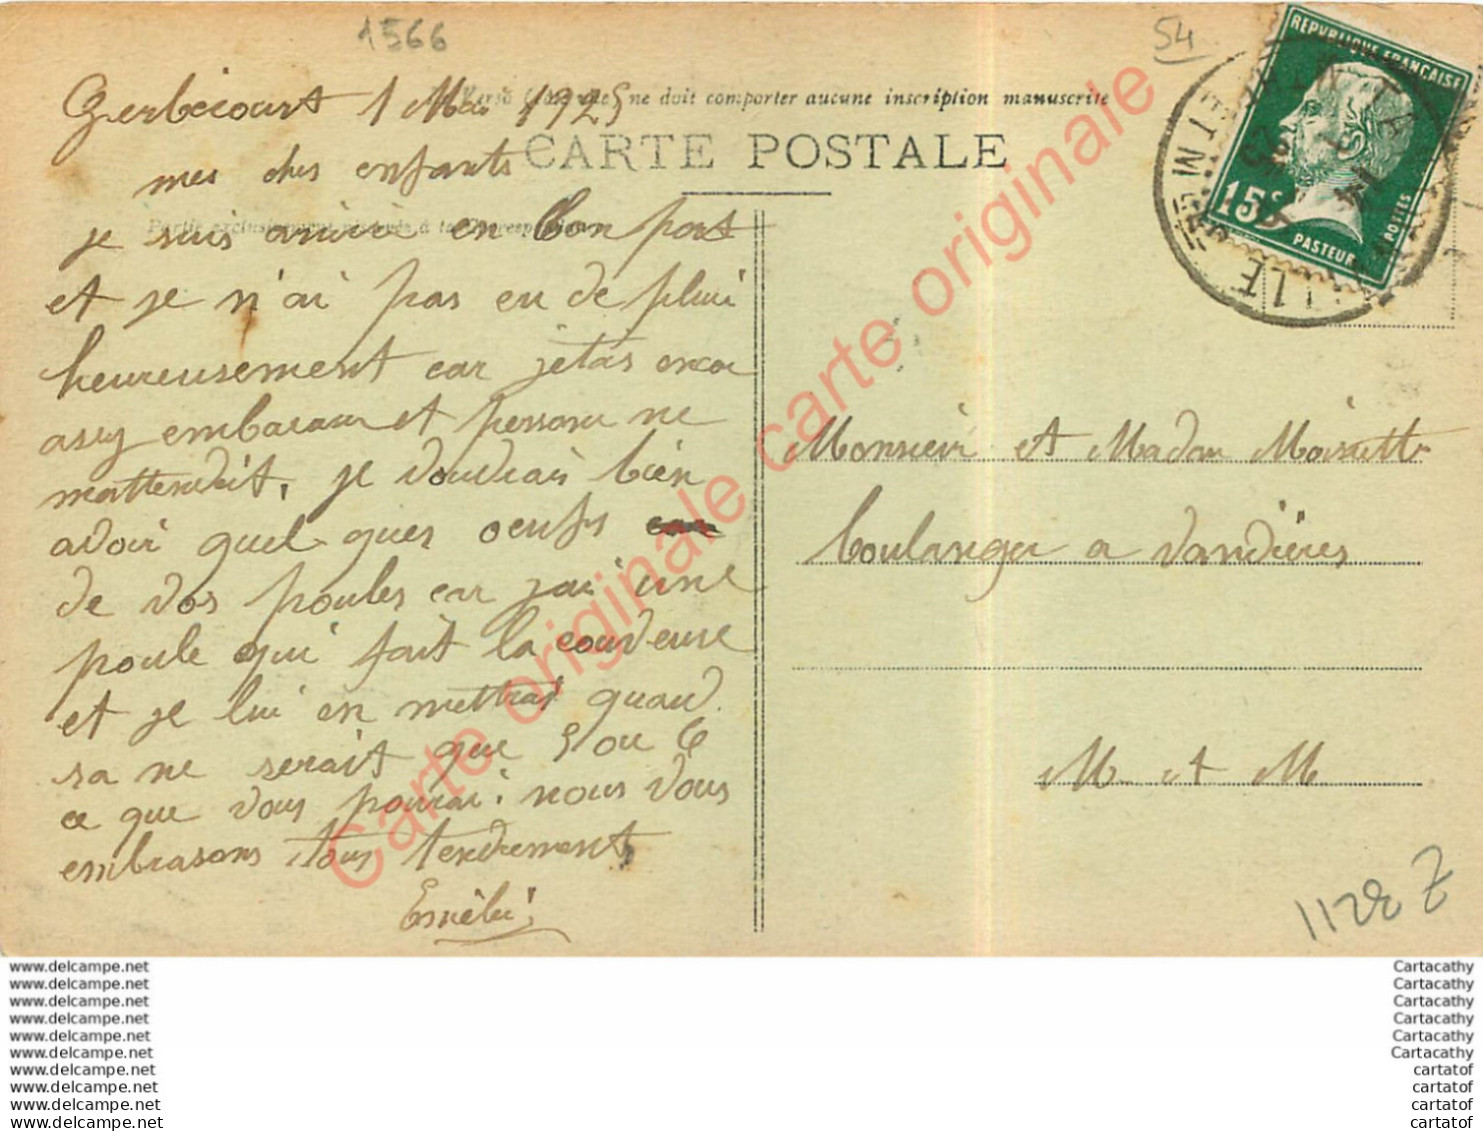 1566
54
Gerbécourt 1 Mai 1925
ne doit comporter aucune inscription manuscrite
CARTE POSTALE
mes chs enfants
je suis arrivée en bon port
et je n'ai pas eu de pluie
heureusement car jetas encor
asez embaras et personne ne
mattendait, je voudrais bien
avoir quelques oeufs
de vos poules car jai une
poule qui fait la couveuse
et je lui en mettrai quand
sa ne serait que 5 ou 6
ce que vous pourai. nous vous
embrasons tous tendrement
REPUBLIQUE FRANÇAISE
15c
POSTES
PASTEUR
Monsieur et Madam
boulanger a Vandières
M et M
1122 Z
Carte originale carte originale carte originale
www.delcampe.net
www.delcampe.net
www.delcampe.net
www.delcampe.net
www.delcampe.net
www.delcampe.net
www.delcampe.net
www.delcampe.net
www.delcampe.net
www.delcampe.net
Cartacathy
Cartacathy
Cartacathy
Cartacathy
Cartacathy
Cartacathy
cartatof
cartatof
cartatof
cartatof